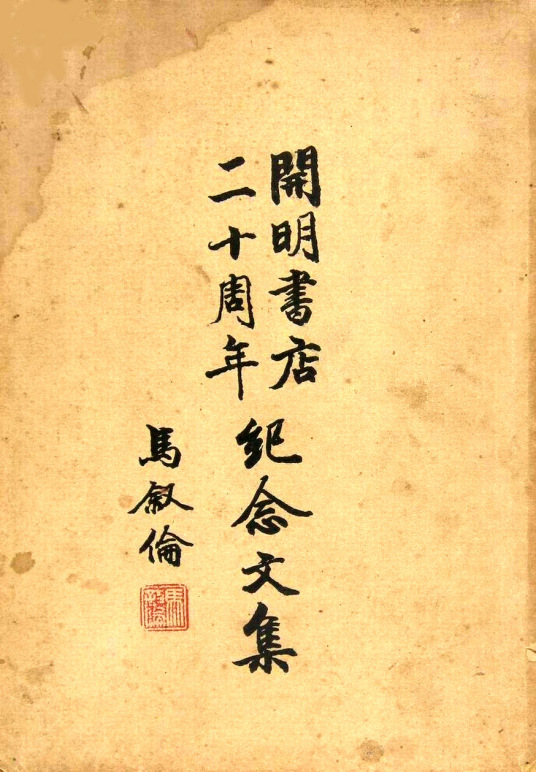 開明書店
二十周年
紀念文集
馬叙倫